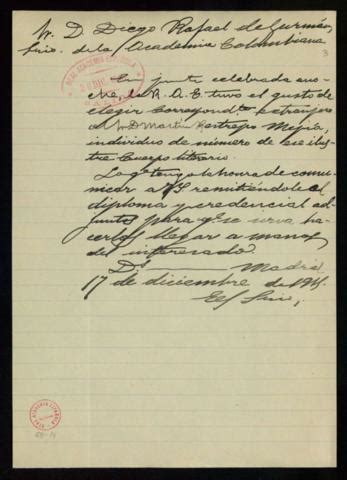 Sr. D. Diego Rafael de Guzmán,
Srio. de la Academia Colombiana
3
REAL ACADEMIA ESPAÑOLA
En junta celebrada ano-
che, la R. A. E. tuvo el gusto de
elegir Correspondte. extranjero
al Sr. D. Martín Restrepo Mejía,
individuo de número de ese ilus-
tre Cuerpo literario.
Lo qe. tengo la honra de comu-
nicar a VS remitiéndole el
diploma y credencial ad-
juntos para qe. se sirva ha-
cerlos llegar a manos
del interesado
Ds Madrid
17 de diciembre de
El Srio,
REAL ACADEMIA ESPAÑOLA